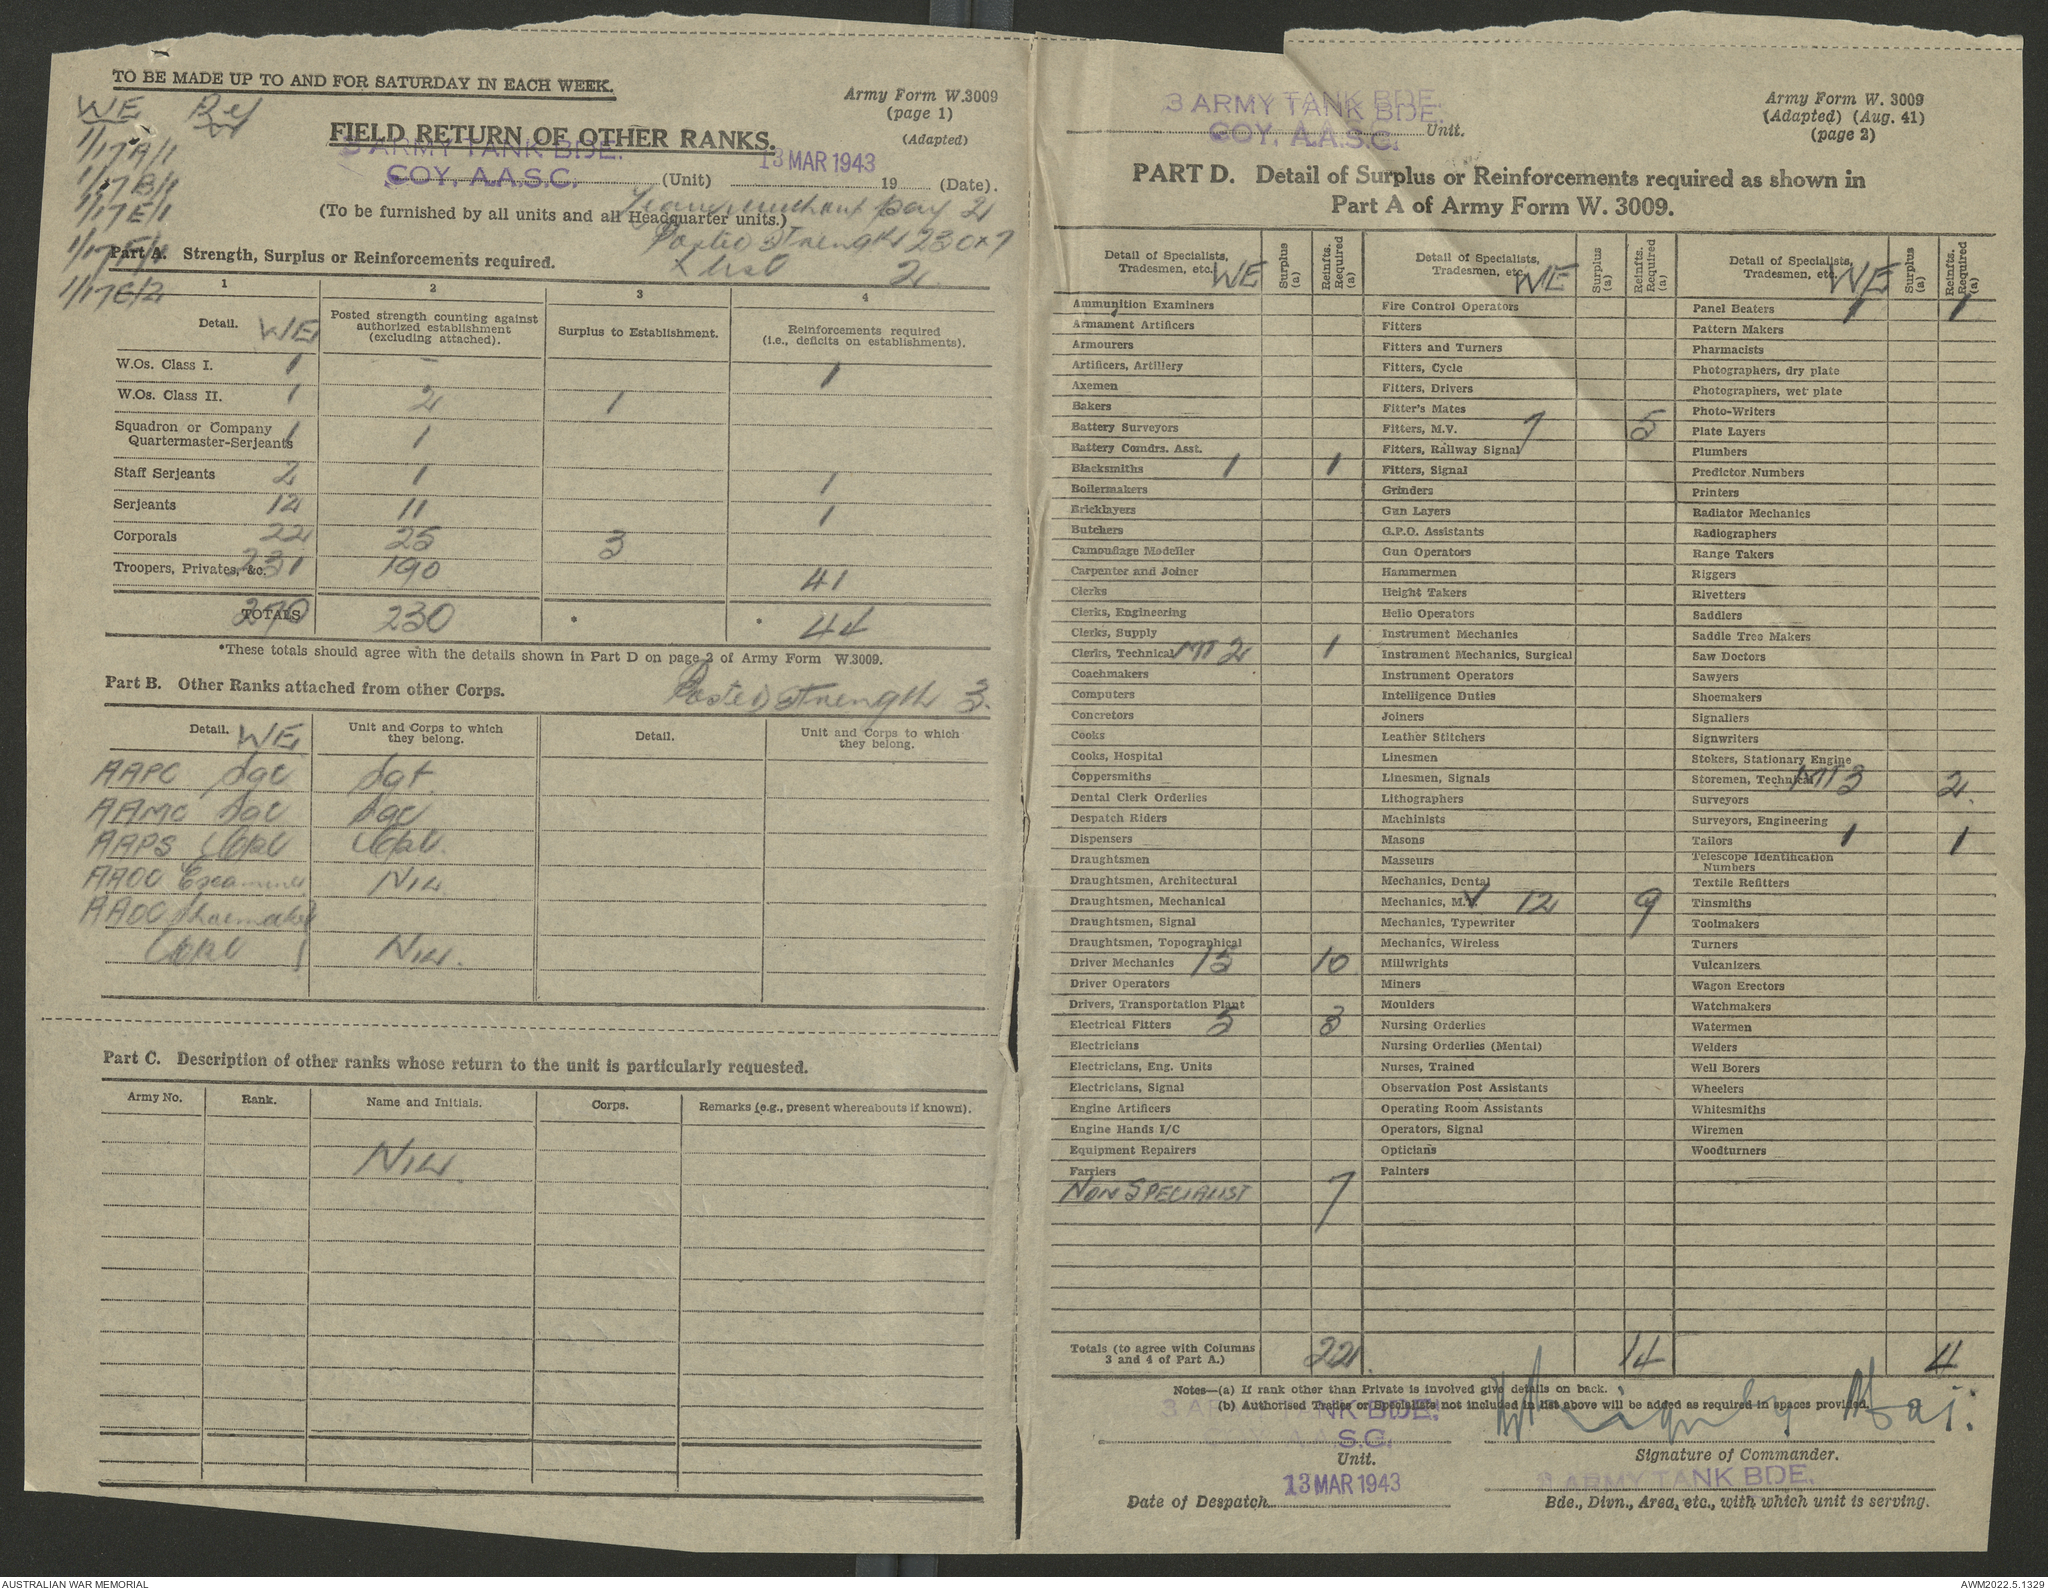 TO BE MADE UP TO AND FOR SATURDAY IN EACH WEEK.
Army Form W.3009
(page 1)
(Adapted)
WE Ref
1/17A/1
1/17B/1
1/17E/1
1/17F/1
1/17C/2
FIELD RETURN OF OTHER RANKS.
3 ARMY TANK BDE.
COY. A.A.S.C. (Unit) 13 MAR 1943 19 (Date).
(To be furnished by all units and all Headquarter units.)
Leave without pay 2
Posted strength 230 x 7
X list 2
Part A. Strength, Surplus or Reinforcements required.
1 2 3 4
Detail. WE Posted strength counting against authorized establishment (excluding attached). Surplus to Establishment. Reinforcements required (i.e., deficits on establishments).
W.Os. Class I. 1 – 1
W.Os. Class II. 1 2 1
Squadron or Company Quartermaster-Serjeants 1 1
Staff Serjeants 2 1 1
Serjeants 12 11 1
Corporals 22 25 3
Troopers, Privates, &c. 231 190 41
TOTALS 270 230 * * 44
*These totals should agree with the details shown in Part D on page 2 of Army Form W.3009.
Part B. Other Ranks attached from other Corps. Posted strength 3.
Detail. WE Unit and Corps to which they belong. Detail. Unit and Corps to which they belong.
AAPC Sgt Sgt.
AAMC Sgt Sgt
AAPS Corpl Corpl.
AAOC Examiner Nil
AAOC Shoemaker
Corpl 1 Nil.
Part C. Description of other ranks whose return to the unit is particularly requested.
Army No. Rank. Name and Initials. Corps. Remarks (e.g., present whereabouts if known).
Nil.
3 ARMY TANK BDE.
COY. A.A.S.C. Unit.
Army Form W. 3009
(Adapted) (Aug. 41)
(page 2)
PART D. Detail of Surplus or Reinforcements required as shown in
Part A of Army Form W. 3009.
Detail of Specialists, Tradesmen, etc. WE Surplus (a) Reinfts. Required (a)
Ammunition Examiners
Armament Artificers
Armourers
Artificers, Artillery
Axemen
Bakers
Battery Surveyors
Battery Comdrs. Asst.
Blacksmiths 1 1
Boilermakers
Bricklayers
Butchers
Camouflage Modeller
Carpenter and Joiner
Clerks
Clerks, Engineering
Clerks, Supply
Clerks, Technical MT 2 1
Coachmakers
Computers
Concretors
Cooks
Cooks, Hospital
Coppersmiths
Dental Clerk Orderlies
Despatch Riders
Dispensers
Draughtsmen
Draughtsmen, Architectural
Draughtsmen, Mechanical
Draughtsmen, Signal
Draughtsmen, Topographical
Driver Mechanics 15 10
Driver Operators
Drivers, Transportation Plant
Electrical Fitters 5 3
Electricians
Electricians, Eng. Units
Electricians, Signal
Engine Artificers
Engine Hands I/C
Equipment Repairers
Farriers
NON SPECIALIST 7
Totals (to agree with Columns 3 and 4 of Part A.) 22.
Detail of Specialists, Tradesmen, etc. WE Surplus (a) Reinfts. Required (a)
Fire Control Operators
Fitters
Fitters and Turners
Fitters, Cycle
Fitters, Drivers
Fitter's Mates
Fitters, M.V. 7 5
Fitters, Railway Signal
Fitters, Signal
Grinders
Gun Layers
G.P.O. Assistants
Gun Operators
Hammermen
Height Takers
Helio Operators
Instrument Mechanics
Instrument Mechanics, Surgical
Instrument Operators
Intelligence Duties
Joiners
Leather Stitchers
Linesmen
Linesmen, Signals
Lithographers
Machinists
Masons
Masseurs
Mechanics, Dental
Mechanics, M.V. 12 9
Mechanics, Typewriter
Mechanics, Wireless
Millwrights
Miners
Moulders
Nursing Orderlies
Nursing Orderlies (Mental)
Nurses, Trained
Observation Post Assistants
Operating Room Assistants
Operators, Signal
Opticians
Painters
14
Detail of Specialists, Tradesmen, etc. WE Surplus (a) Reinfts. Required (a)
Panel Beaters 1 1
Pattern Makers
Pharmacists
Photographers, dry plate
Photographers, wet plate
Photo-Writers
Plate Layers
Plumbers
Predictor Numbers
Printers
Radiator Mechanics
Radiographers
Range Takers
Riggers
Rivetters
Saddlers
Saddle Tree Makers
Saw Doctors
Sawyers
Shoemakers
Signallers
Signwriters
Stokers, Stationary Engine
Storemen, Technical MT 3 2.
Surveyors
Surveyors, Engineering
Tailors 1 1
Telescope Identification Numbers
Textile Refitters
Tinsmiths
Toolmakers
Turners
Vulcanizers
Wagon Erectors
Watchmakers
Watermen
Welders
Well Borers
Wheelers
Whitesmiths
Wiremen
Woodturners
4
Notes—(a) If rank other than Private is involved give details on back.
(b) Authorised Trades or Specialists not included in list above will be added as required in spaces provided.
3 ARMY TANK BDE.
S.C.
Unit.
Maj.
Signature of Commander.
13 MAR 1943
Date of Despatch
3 ARMY TANK BDE.
Bde., Divn., Area, etc., with which unit is serving.
AUSTRALIAN WAR MEMORIAL
AWM2022.5.1329